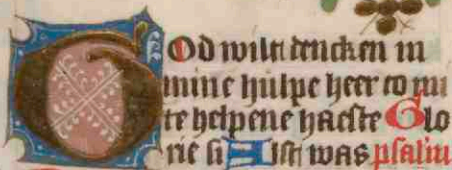 God wilt dencken in
mine hulpe heer co mi
te helpene haeste Glo
rie si Alsh was psalm